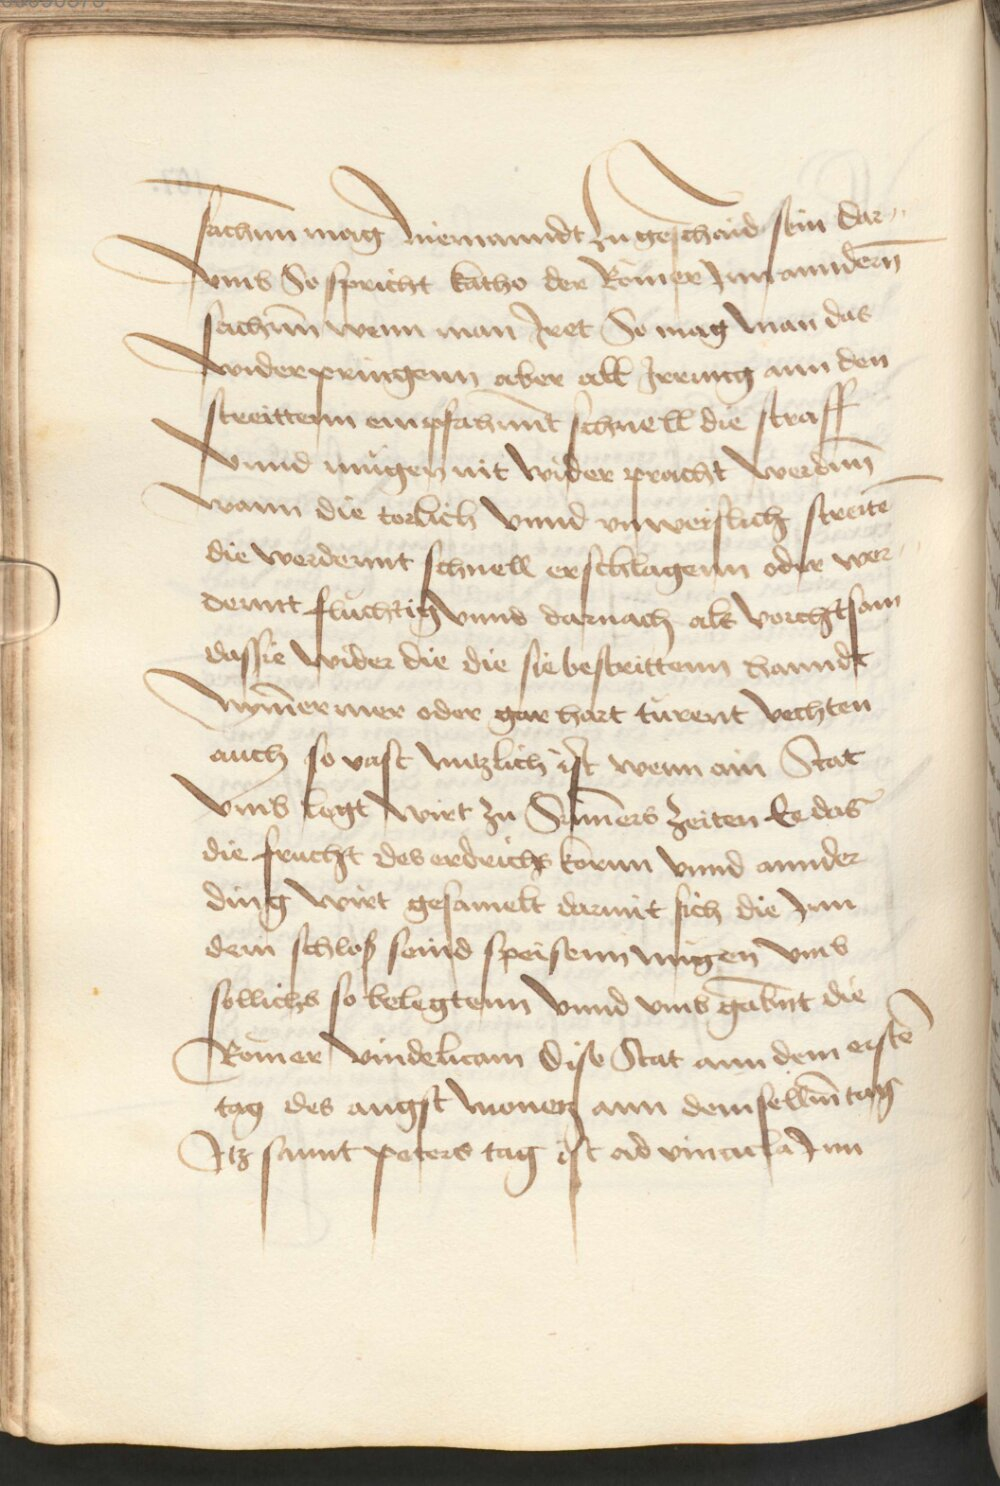 sachnn mag Niemanndt zu geschaid sein dar-
vmb So spricht katho der Römer Jnn anndern̄
sachen̄ wenn man Jret So mag man das
widerpringenn aber all Jrrung ann den
streittenn empfachent schnell die straff
vnnd mügen nit wider pracht werden̄
wann die torlich vnnd vnweislich streitē
die werdennt schnell erschlagenn oder wer-
dennt fluchtig vnnd darnach als vorchtsam
das sie wider die die sie bestrittenn hanndt
Nym̄ermer oder gar hart türent vechten
auch so vast nützlich ist wenn ain Stat
vmb legt wirt zu Sum̄ers Zeiten Ee das
die frucht des erdrichs korun vnnd annder
ding wirt gesamelt darmit sich die Jnn
dem schloß seind speisenn mügen vmb
sollichs so belegtenn vnnd vmb gabnt die
Römer vindelicam dise Stat ann dem erstē
tag des augst monetz ann demsellen̄ tag
Jtz sannt peters tag ist ad vincula Jnn